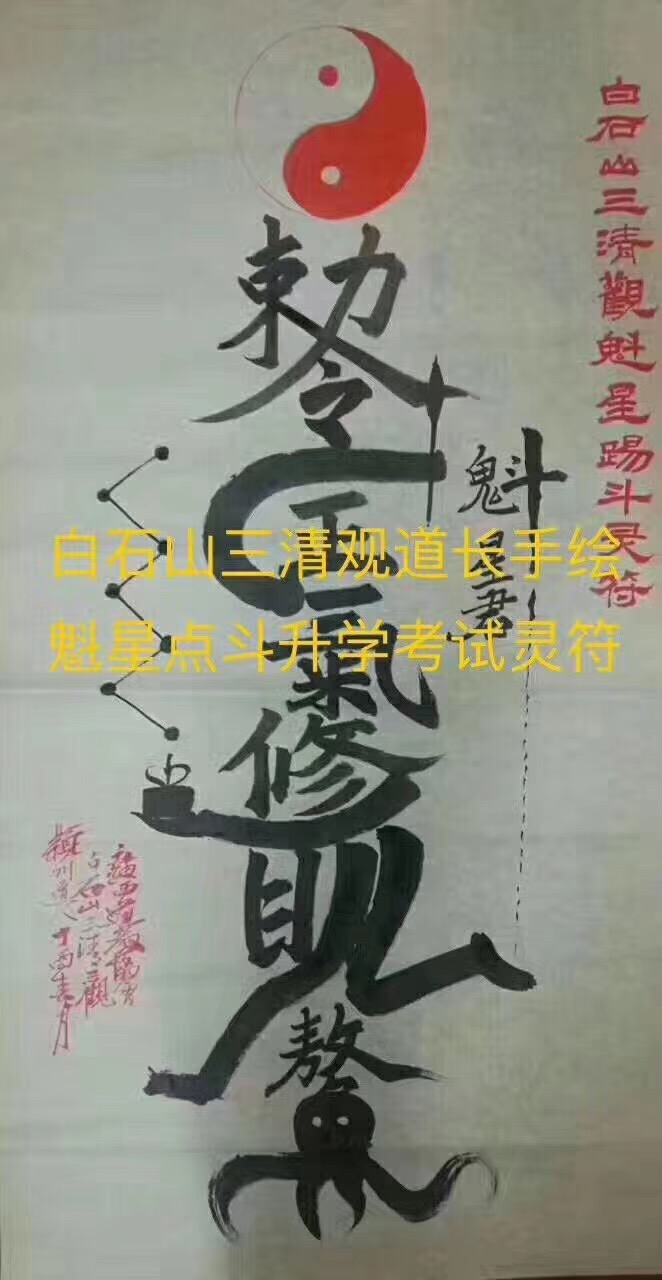 白石山三清觀魁星踢斗灵符
勅令
正氣
修
魁星君
白石山三清观道长手绘
魁星点斗升学考试灵符
白石山三清觀